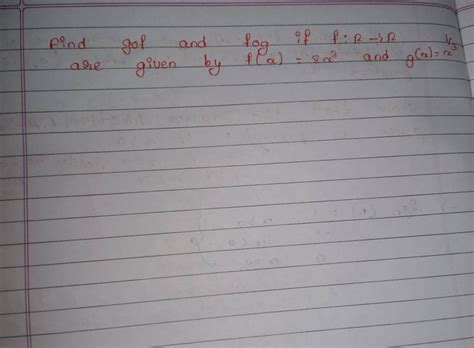 Find gof and fog if f: R → R
are given by f(x) = 8x³ and g(x) = x^1/3